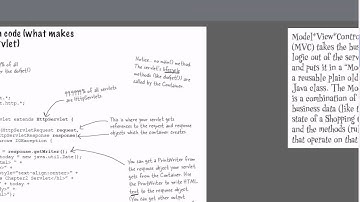 n code (what makes
vlet)
% of all
r the doGet()
Notice... no main() method.
The servlet's lifecycle
methods (like doGet()) are
called by the Container.
99.9999% of all servlets
are HttpServlets
*;
http.*;
let extends HttpServlet {
HttpServletRequest request,
HttpServletResponse response)
rows IOException {
This is where your servlet gets
references to the request and response
objects which the container creates.
= response.getWriter();
today = new java.util.Date();
ml> " +
" +
style="text-align:center>" +
Chapter2 Servlet</h1>" +
" + today + "</body>" +
tml>");
You can get a PrintWriter from
the response object your servlet
gets from the Container. Use
the PrintWriter to write HTML
text to the response object.
(You can get other output
Model*View*Contro
(MVC) takes the bus
logic out of the servle
and puts it in a "Mod
a reusable plain old
Java class. The Mode
is a combination of
business data (like t
state of a Shopping C
and the methods (ru
that operate on that